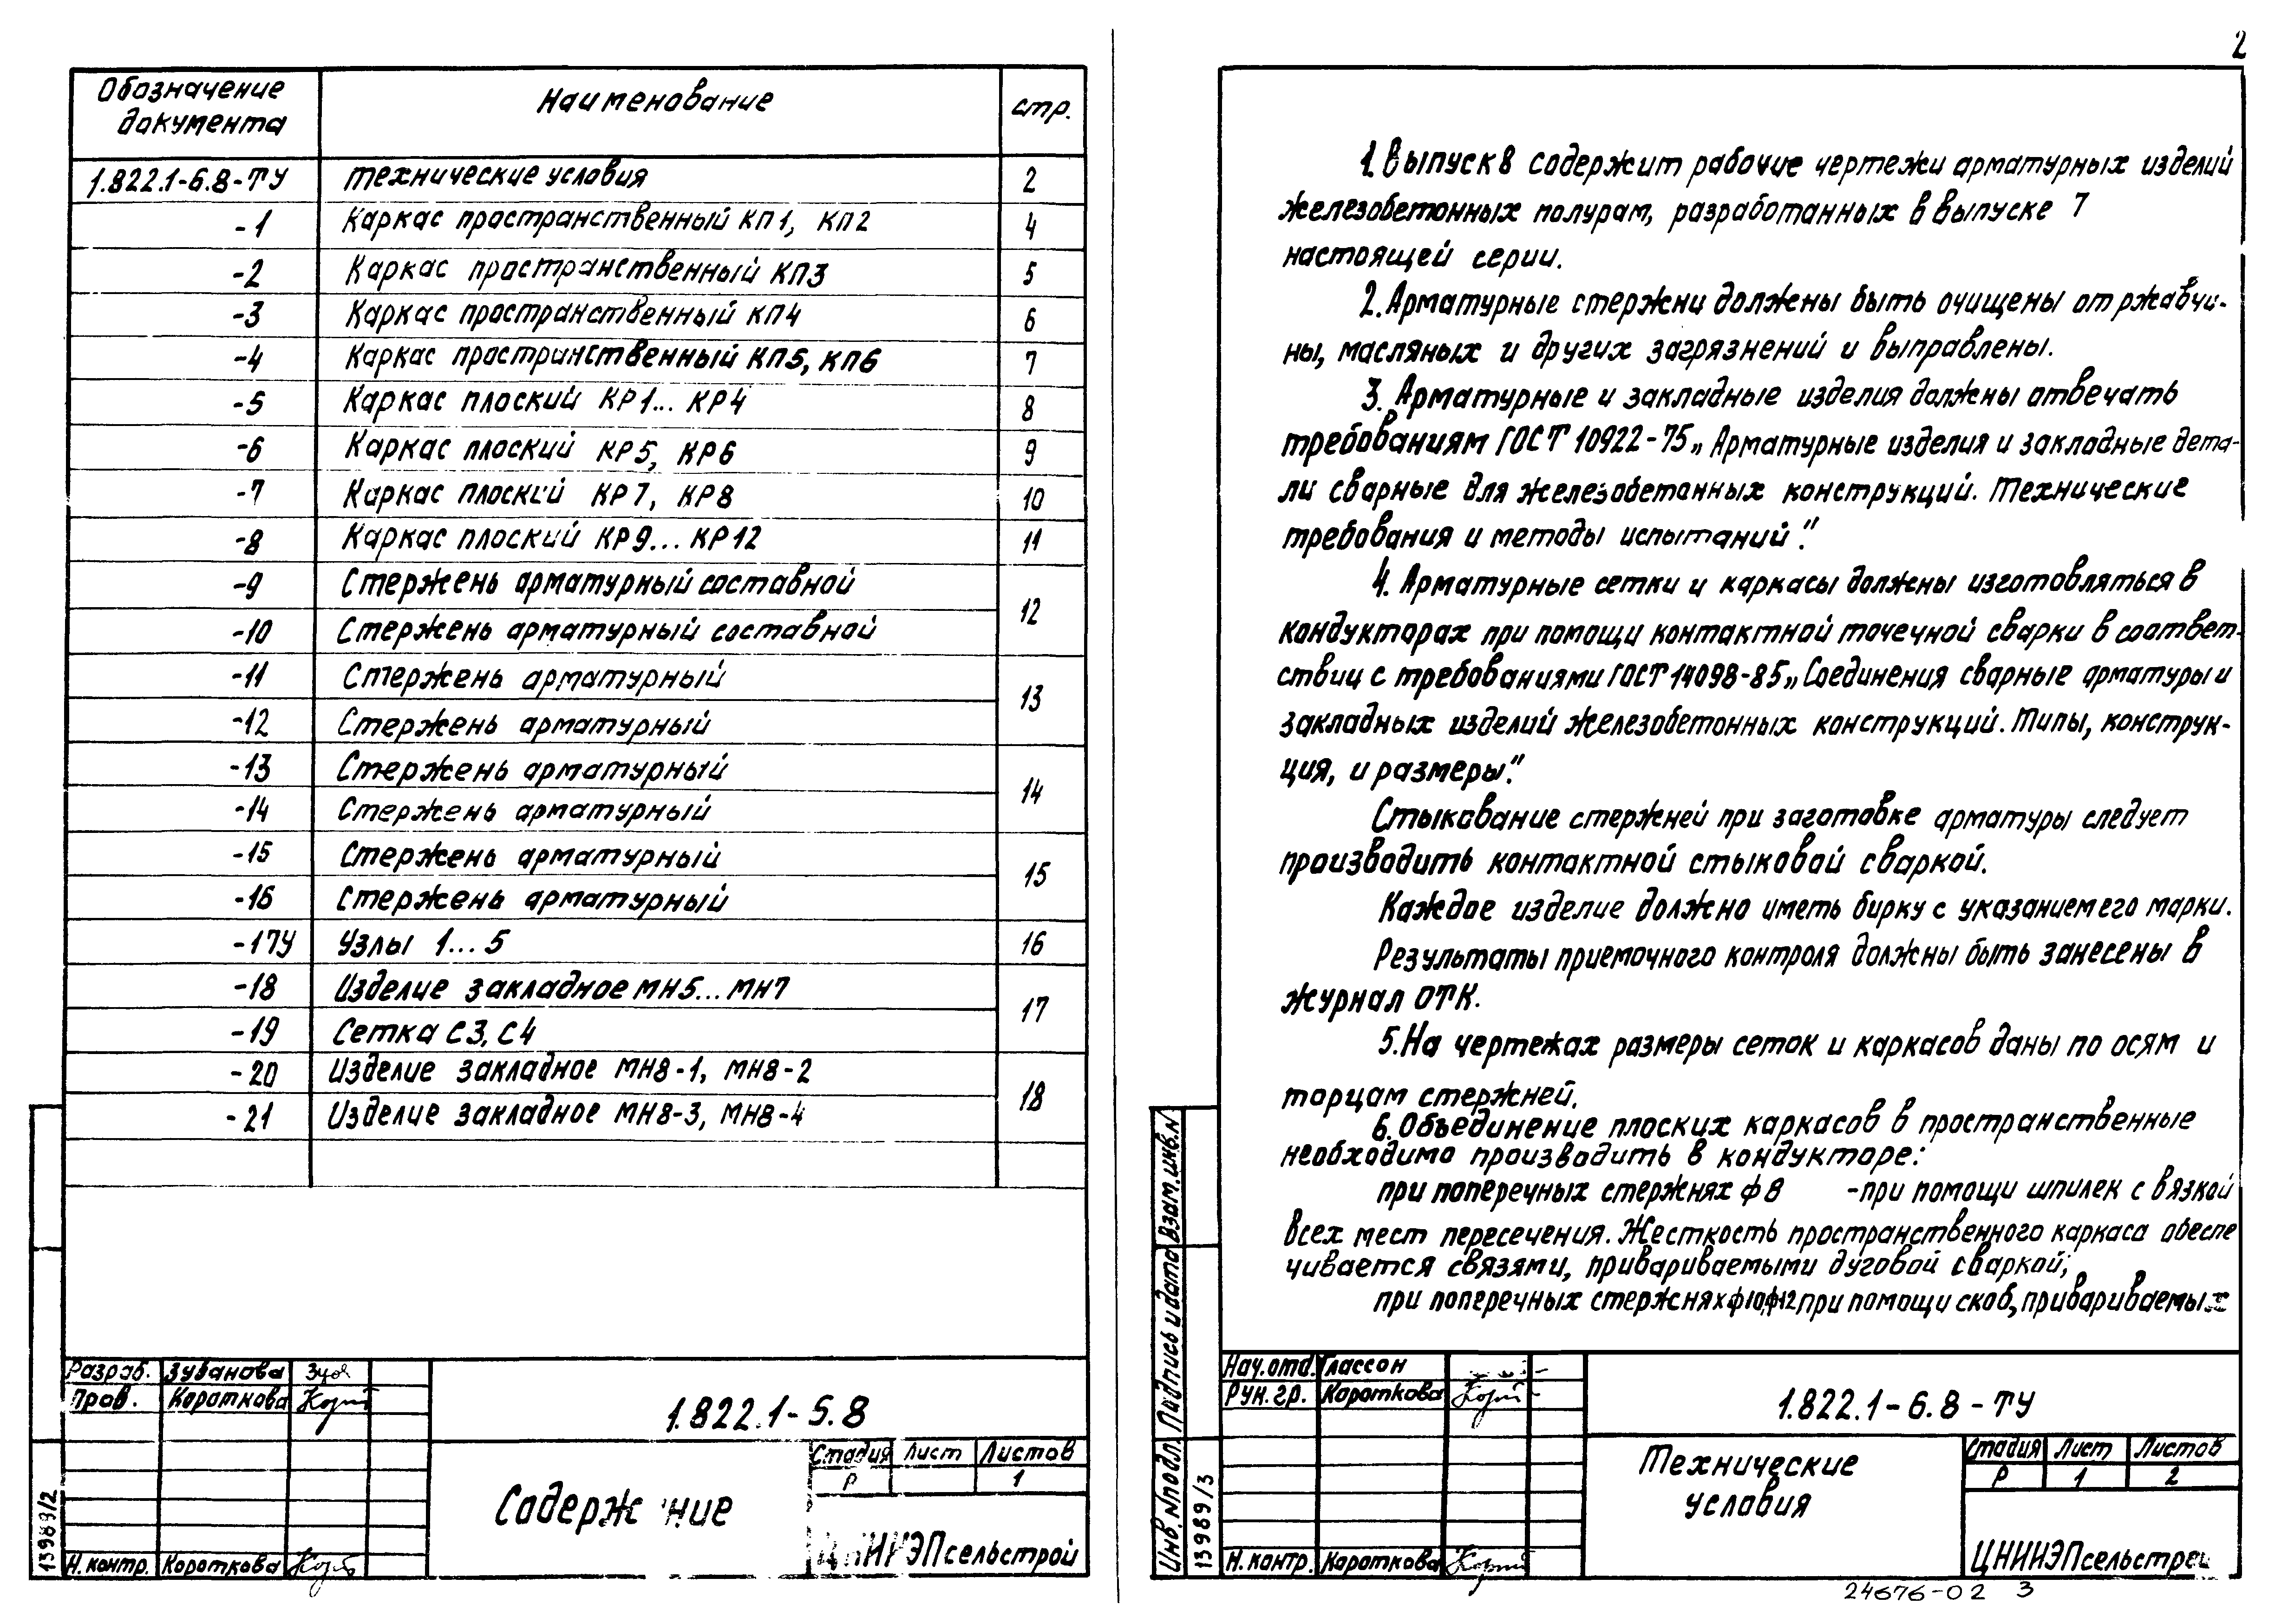 2
Обозначение документа Наименование стр.
1.822.1-6.8-ТУ Технические условия 2
-1 Каркас пространственный КП1, КП2 4
-2 Каркас пространственный КП3 5
-3 Каркас пространственный КП4 6
-4 Каркас пространственный КП5, КП6 7
-5 Каркас плоский КР1... КР4 8
-6 Каркас плоский КР5, КР6 9
-7 Каркас плоский КР7, КР8 10
-8 Каркас плоский КР9... КР12 11
-9 Стержень арматурный составной 12
-10 Стержень арматурный составной
-11 Стержень арматурный 13
-12 Стержень арматурный
-13 Стержень арматурный 14
-14 Стержень арматурный
-15 Стержень арматурный 15
-16 Стержень арматурный
-17У Узлы 1... 5 16
-18 Изделие закладное МН5... МН7 17
-19 Сетка С3, С4
-20 Изделие закладное МН8-1, МН8-2 18
-21 Изделие закладное МН8-3, МН8-4
Разраб. Зубанова
Пров. Короткова
Н. контр. Короткова
1.822.1-5.8
Содерж ние
Стадия Лист Листов
Р 1
ЦНИИЭПсельстрой
13989/2
1. Выпуск 8 содержит рабочие чертежи арматурных изделий
железобетонных полурам, разработанных в выпуске 7
настоящей серии.
2. Арматурные стержни должены быть очищены от ржавчи-
ны, масляных и других загрязнений и выправлены.
3. Арматурные и закладные изделия должны отвечать
требованиям ГОСТ 10922-75 „Арматурные изделия и закладные дета-
ли сварные для железобетонных конструкций. Технические
требования и методы испытаний".
4. Арматурные сетки и каркасы должны изготовляться в
кондукторах при помощи контактной точечной сварки в соответ-
ствии с требованиями ГОСТ 14098-85 „Соединения сварные арматуры и
закладных изделий железобетонных конструкций. Типы, конструк-
ция, и размеры".
Стыкование стержней при заготовке арматуры следует
производить контактной стыковой сваркой.
Каждое изделие должно иметь бирку с указанием его марки.
Результаты приемочного контроля должны быть занесены в
журнал ОТК.
5. На чертежах размеры сеток и каркасов даны по осям и
торцам стержней.
6. Объединение плоских каркасов в пространственные
необходимо производить в кондукторе:
при поперечных стержнях ф 8 -при помощи шпилек с вязкой
всех мест пересечения. Жесткость пространственного каркаса обеспе
чивается связями, привариваемыми дуговой сваркой;
при поперечных стержнях ф10,ф12 при помощи скоб, привариваемых
Нач. отд. Глассон
Рук. гр. Короткова
Н. контр. Короткова
1.822.1-6.8-ТУ
Технические условия
Стадия Лист Листов
Р 1 2
ЦНИИЭПсельстрой
Инв. N подл. Подпись и дата Взам. инв. N
13989/3
24676-02 3